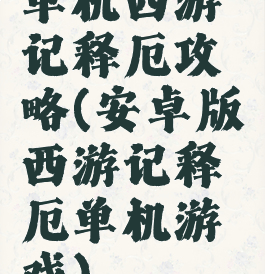 单机西游
记释厄攻
略(安卓版
西游记释
厄单机游
戏)